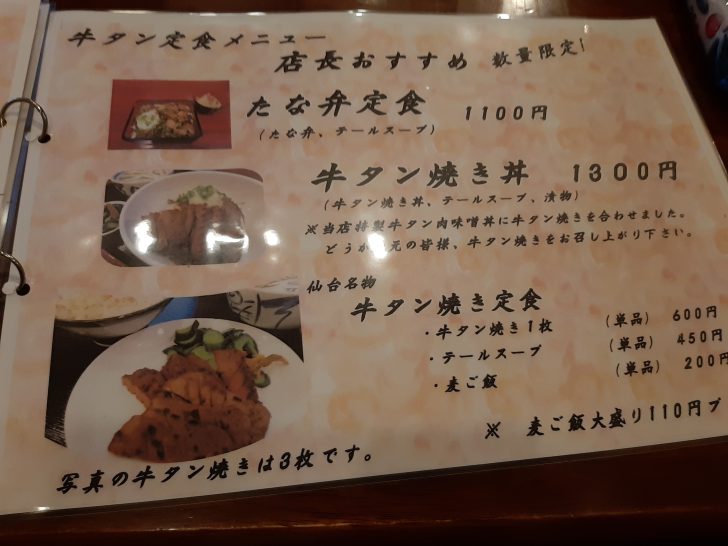 牛タン定食メニュー
店長おすすめ 数量限定!
たな弁定食 1100円
(たな弁、テールスープ)
牛タン焼き丼 1300円
(牛タン焼き丼、テールスープ、漬物)
※当店特製牛タン肉味噌丼に牛タン焼きを合わせました。
どうか 元の皆様、牛タン焼きをお召し上がり下さい。
仙台名物
牛タン焼き定食
・牛タン焼き1枚 (単品) 600円
・テールスープ (単品) 450円
・麦ご飯 (単品) 200円
※ 麦ご飯大盛り110円プ
写真の牛タン焼きは3枚です。